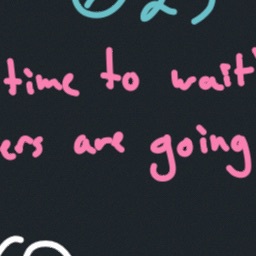 time to wait
ers are going